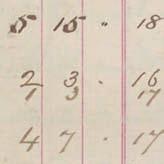 5 15 " 18
2 3 . 16
1 3 17
4 7 . 17